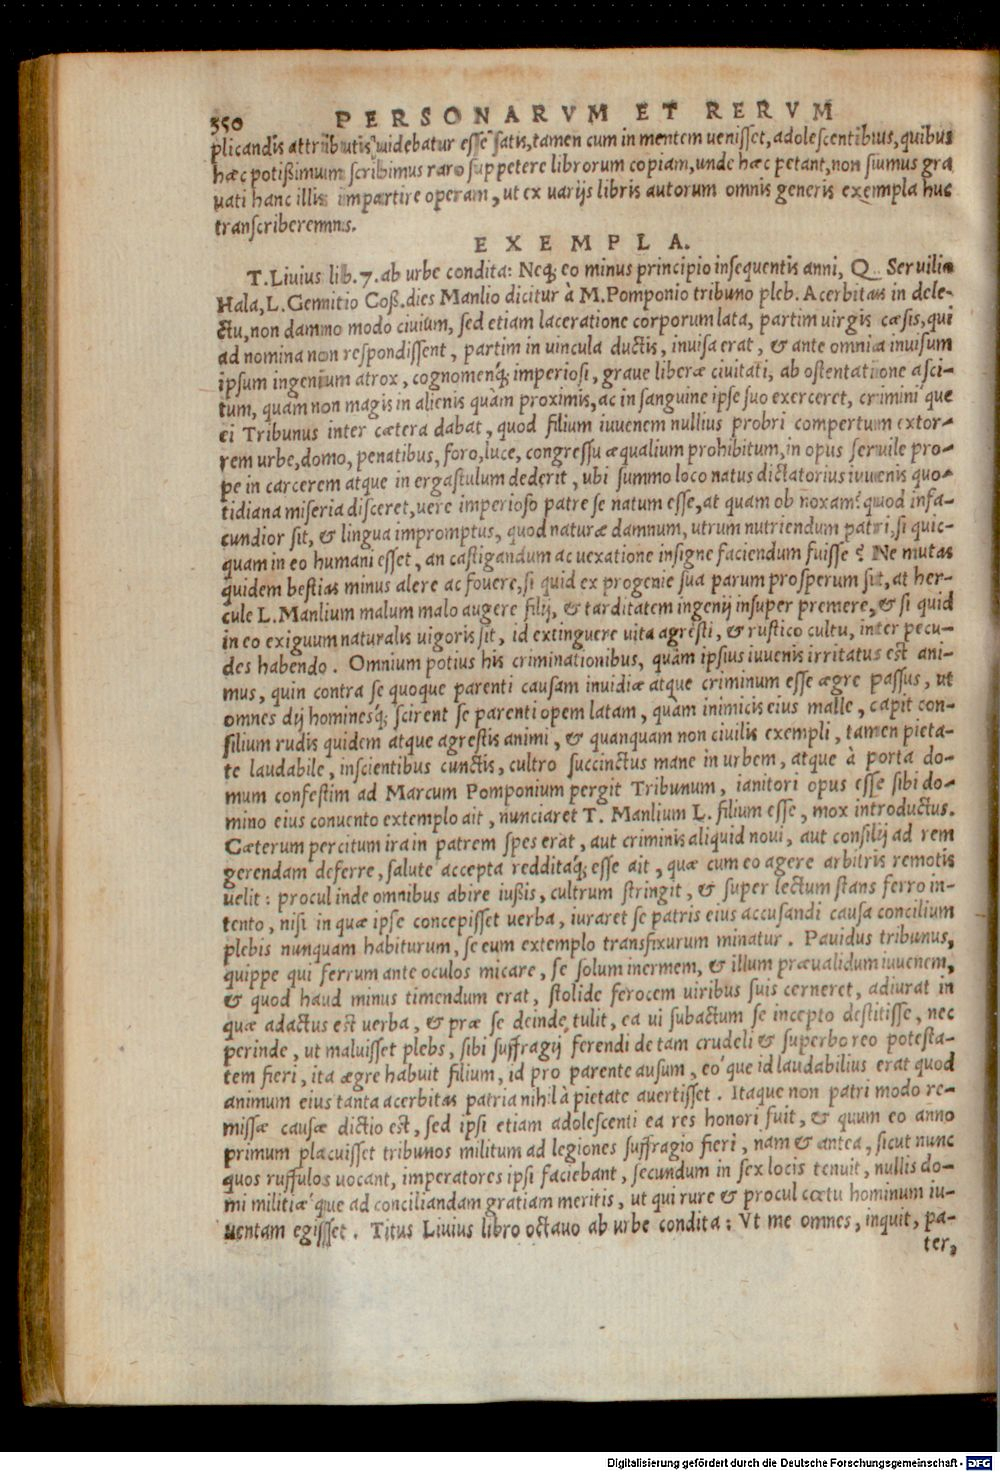 350 PERSONARVM ET RERVM
plicandis attributis uidebatur esse satis, tamen cum in mentem uenisset, adolescentibus, quibus
hæc potißimum scribimus raro suppetere librorum copiam, unde hæc petant, non sumus gra
uati hanc illis impartire operam, ut ex uarijs libris autorum omnis generis exempla huc
transcriberemus.
EXEMPLA.
T. Liuius lib. 7. ab urbe condita: Neq; eo minus principio insequentis anni, Q. Seruilio
Hala, L. Genitio Coß. dies Manlio dicitur à M. Pomponio tribuno pleb. Acerbitas in dele-
ctu, non damno modo ciuium, sed etiam laceratione corporum lata, partim uirgis cæsis, qui
ad nomina non respondissent, partim in uincula ductis, inuisa erat, & ante omnia inuisum
ipsum ingenium atrox, cognomenq́; imperiosi, graue liberæ ciuitati, ab ostentatione asci-
tum, quàm non magis in alienis quàm proximis, ac in sanguine ipse suo exerceret, crimini que
ei Tribunus inter cætera dabat, quod filium iuuenem nullius probri compertum extor-
rem urbe, domo, penatibus, foro, luce, congressu æqualium prohibitum, in opus seruile pro-
pe in carcerem atque in ergastulum dederit, ubi summo loco natus dictatorius iuuenis quo-
tidiana miseria disceret, uere imperioso patre se natum esse, at quam ob noxam? quod infa-
cundior sit, & lingua impromptus, quod naturæ damnum, utrum nutriendum patri, si quic-
quam in eo humani esset, an castigandum ac uexatione insigne faciendum fuisse? Ne mutas
quidem bestias minus alere ac fouere, si quid ex progenie sua parum prosperum sit, at her-
cule L. Manlium malum malo augere filij, & tarditatem ingenij insuper premere, & si quid
in eo exiguum naturalis uigoris sit, id extinguere uita agresti, & rustico cultu, inter pecu-
des habendo. Omnium potius his criminationibus, quàm ipsius iuuenis irritatus est ani-
mus, quin contra se quoque parenti causam inuidiæ atque criminum esse ægre passus, ut
omnes dij hominesq́; scirent se parenti opem latam, quàm inimicis eius malle, capit con-
silium rudis quidem atque agrestis animi, & quanquam non ciuilis exempli, tamen pieta-
te laudabile, inscientibus cunctis, cultro succinctus mane in urbem, atque à porta do-
mum confestim ad Marcum Pomponium pergit Tribunum, ianitori opus esse sibi do-
mino eius conuento extemplo ait, nunciaret T. Manlium L. filium esse, mox introductus.
Cæterum percitum ira in patrem spes erat, aut criminis aliquid noui, aut consilij ad rem
gerendam deferre, salute accepta redditaq́; esse ait, quæ cum eo agere arbitris remotis
uelit: procul inde omnibus abire iußis, cultrum stringit, & super lectum stans ferro in-
tento, nisi in quæ ipse concepisset uerba, iuraret se patris eius accusandi causa concilium
plebis nunquam habiturum, se eum extemplo transfixurum minatur. Pauidus tribunus,
quippe qui ferrum ante oculos micare, se solum inermem, & illum præualidum iuuenem,
& quod haud minus timendum erat, stolide ferocem uiribus suis cerneret, adiurat in
quæ adactus est uerba, & præ se deinde tulit, ea ui subactum se incepto destitisse, nec
perinde, ut maluisset plebs, sibi suffragij ferendi de tam crudeli & superbo reo potesta-
tem fieri, ita ægre habuit filium, id pro parente ausum, eo´que id laudabilius erat quod
animum eius tanta acerbitas patria nihil à pietate auertisset. Itaque non patri modo re-
missæ causæ dictio est, sed ipsi etiam adolescenti ea res honori fuit, & quum eo anno
primum placuisset tribunos militum ad legiones suffragio fieri, nam & antea, sicut nunc
quos ruffulos uocant, imperatores ipsi faciebant, secundum in sex locis tenuit, nullis do-
mi militiæ´que ad conciliandam gratiam meritis, ut qui rure & procul cœtu hominum iu-
uentam egisset. Titus Liuius libro octauo ab urbe condita: Vt me omnes, inquit, pa-
ter,
Digitalisierung gefördert durch die Deutsche Forschungsgemeinschaft - DFG